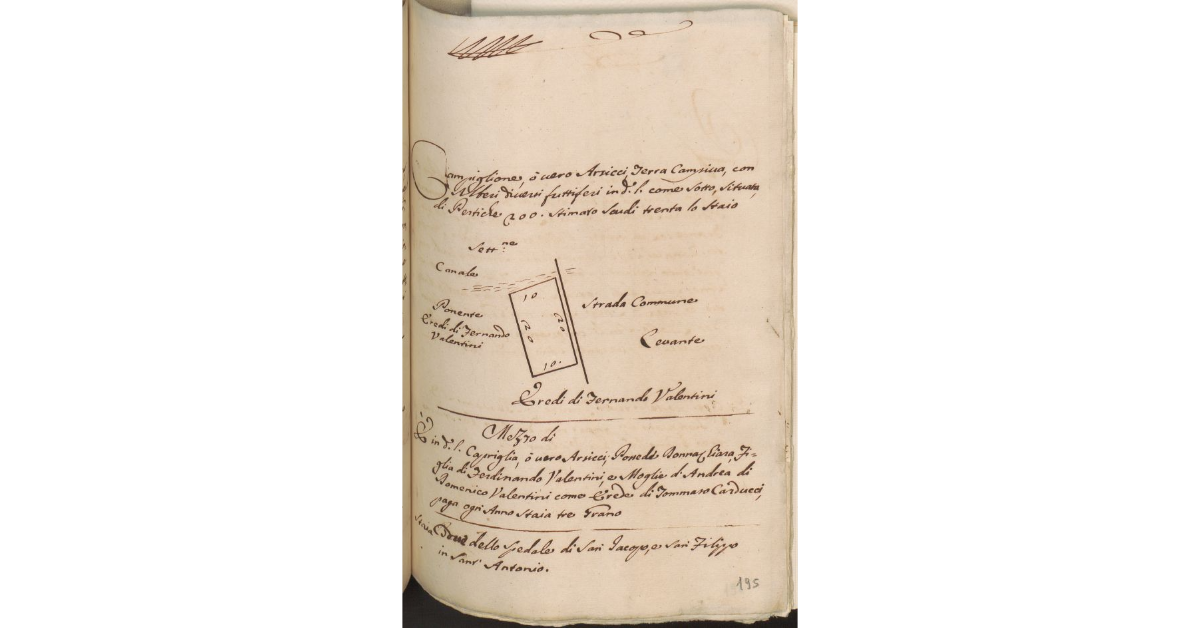 Campiglione, ò vero Arsicci, Terra Campiva, con
Alberi diversi fruttiferi in d.º l. come sotto, situata,
di Pertiche 200. stimato scudi trenta lo staio
Sett.ne
Canale
10
Strada Commune
Ponente
Eredi di Fernando
Valentini
20
20
Levante
10.
Eredi di Fernando Valentini
Mezzo di
È in d.º l. Capriglia, ò vero Arsicci, Possedi Donna Chiara, Fi=
glia di Ferdinando Valentini, e Moglie d'Andrea di
Domenico Valentini come Erede di Tommaso Carducci,
paga ogni Anno staia tre Grano
dello spedale di San Jacopo, e san Filippo
in Sant' Antonio.
195